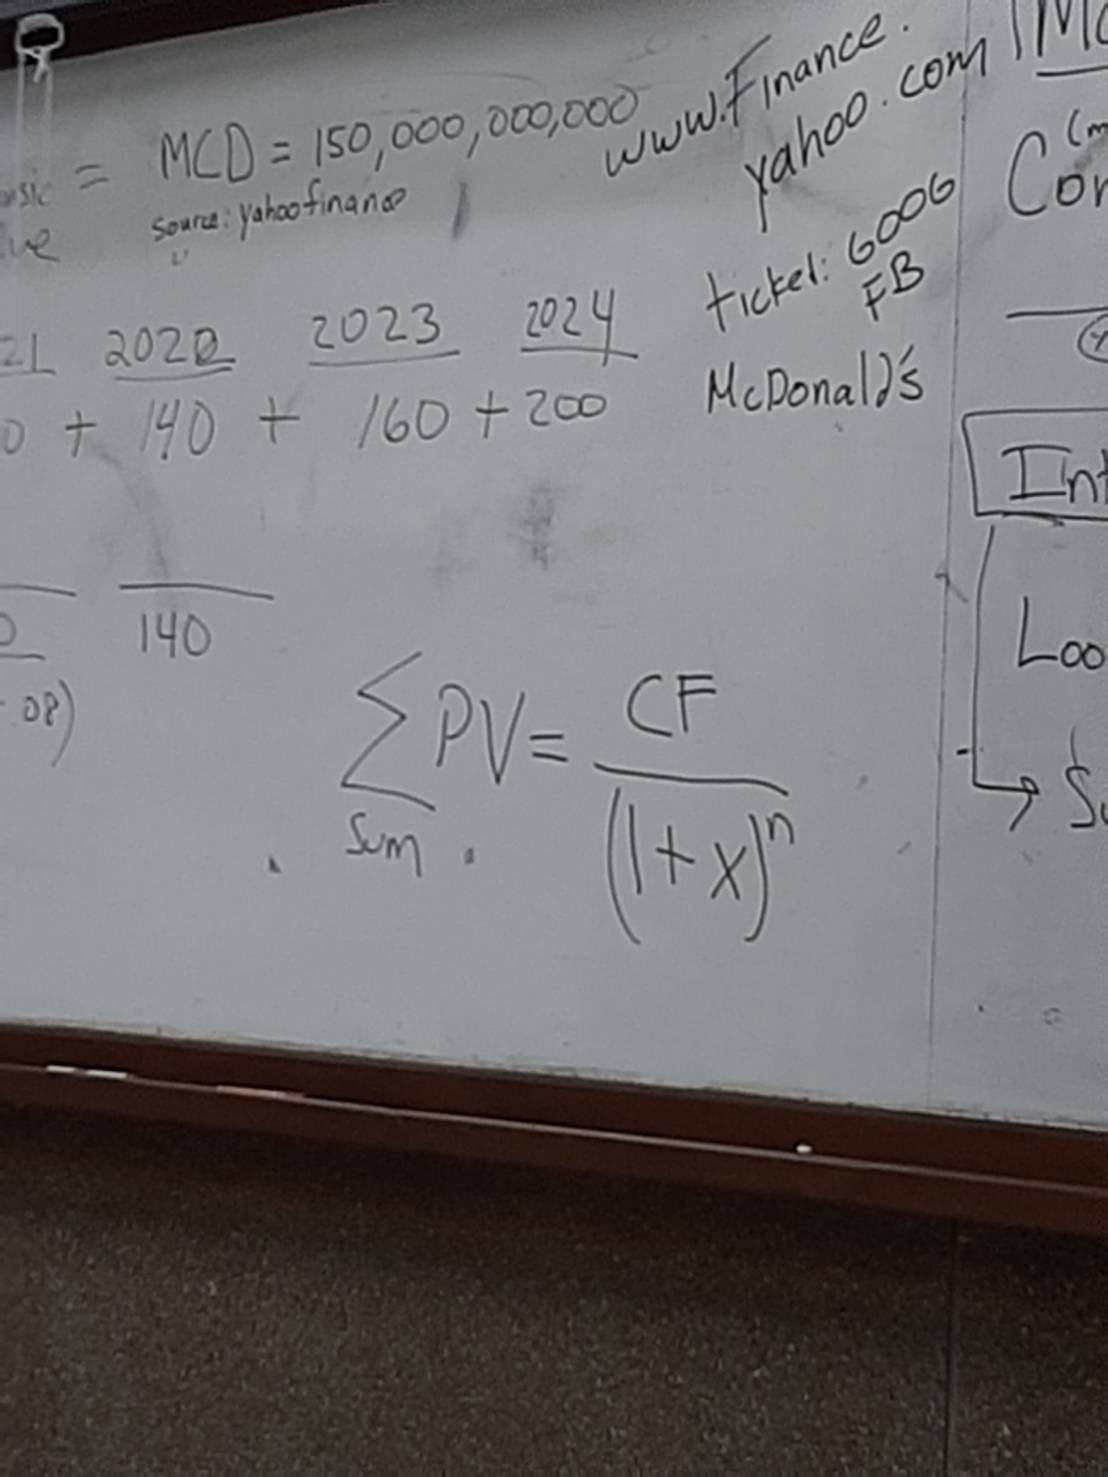 = MCD = 150,000,000,000
source: yahoofinance
www.Finance.
yahoo.com
ticker: GOOG
FB
McDonald's
21 2022 2023 2024
0 + 140 + 160 + 200
0 140
.08)
∑ PV = CF
(1+x)ⁿ
Sum
Int
Loo